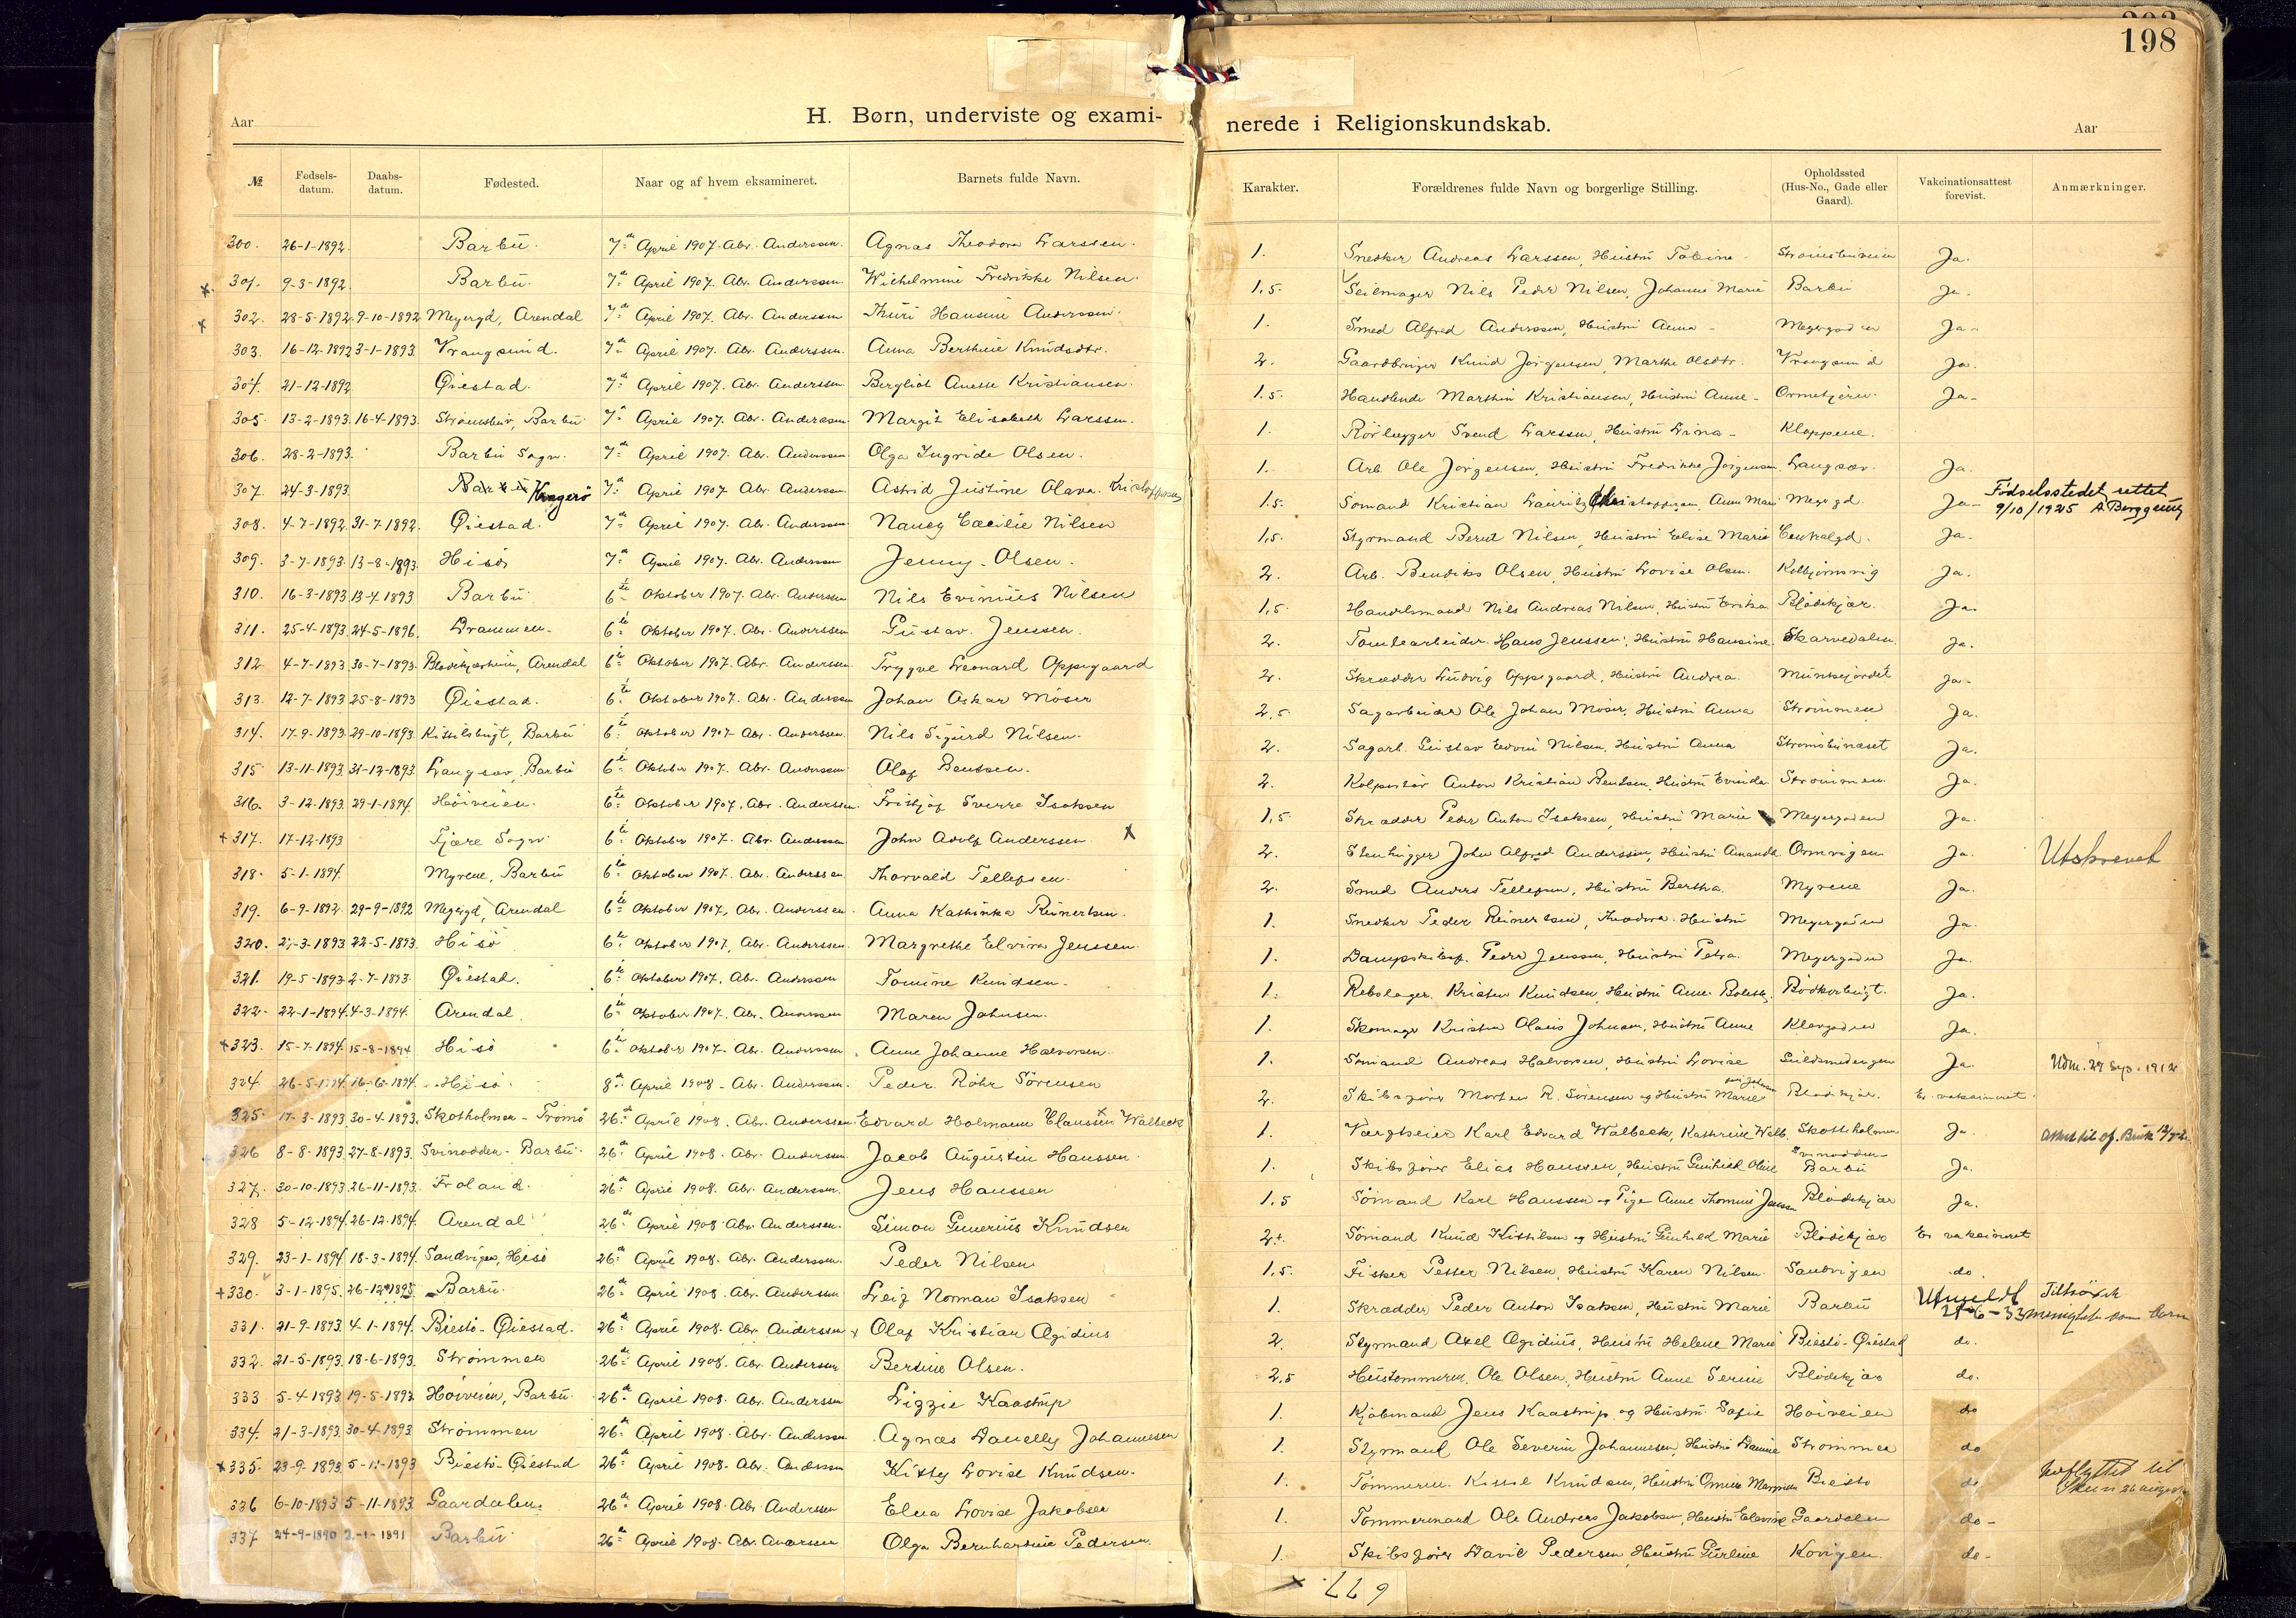 203
198
Aar
H. Børn, underviste og exami-
nerede i Religionskundskab.
Aar
№ Fødsels-datum. Daabs-datum. Fødested. Naar og af hvem eksamineret. Barnets fulde Navn.
Karakter. Forældrenes fulde Navn og borgerlige Stilling. Opholdssted (Hus-No., Gade eller Gaard). Vakcinationsattest forevist. Anmærkninger.
300. 26-1-1892. Barbu. 7de April 1907. Abr. Anderssen. Agnas Theodora Larssen.
× 301. 9-3-1892. Barbu. 7de April 1907. Abr. Anderssen. Wilhelmine Fredrikke Nilsen.
× 302. 28-5-1892. 9-10-1892. Meyergd, Arendal 7de April 1907. Abr. Anderssen Thuri Hansine Anderssen.
303. 16-12-1892 3-1-1893. Vrangsund. 7de April 1907. Abr. Anderssen. Anna Berthine Knudsdtr.
304. 21-12-1892 Øiestad. 7de April 1907. Abr. Anderssen Bergliot Anette Kristiansen.
305. 13-2-1893. 16-4-1893. Strømsbu, Barbu. 7de April 1907. Abr. Anderssen. Margit Elisabeth Larssen.
306. 28-2-1893. Barbu Sogn. 7de April 1907. Abr. Anderssen Olga Ingride Olsen.
307. 24-3-1893. Barbu Kragerø 7de April 1907 Abr. Anderssen Astrid Justine Olava. Kristoffersen
308. 4-7-1892. 31-7-1892. Øiestad. 7de April 1907. Abr. Anderssen. Nancy Cæcilie Nilsen
309. 3-7-1893. 13-8-1893. Hisø 7de April 1907. Abr. Anderssen Jenny Olsen.
310. 16-3-1893 13-4-1893 Barbu 6te Oktober 1907. Abr. Anderssen Nils Evinius Nilsen
311. 25-4-1893. 24-5-1896. Drammen. 6te Oktober 1907. Abr. Anderssen Gustav Jenssen.
312 4-7-1893 30-7-1893. Blødekjærheien, Arendal 6te Oktober 1907. Abr. Anderssen. Trygve Leonard Oppegaard
313. 12-7-1893 25-8-1893 Øiestad. 6te Oktober 1907. Abr. Anderssen Johan Oskar Moser
314. 17-9-1893. 29-10-1893. Kittilsbugt, Barbu 6te Oktober 1907 Abr. Anderssen. Nils Sigurd Nilsen.
315 13-11-1893. 31-12-1893. Langsæv, Barbu 6te Oktober 1907. Abr. Anderssen Olaf Bentsen.
316. 3-12-1893. 29-1-1894. Høiveien. 6te Oktober 1907. Abr. Anderssen. Fritjof Sverre Isaksen
+ 317. 17-12-1893 Fjære Sogn 6te Oktober 1907. Abr. Anderssen John Adolf Anderssen. X
318. 5-1-1894. Myrene, Barbu 6te Oktober 1907. Abr. Anderssen. Thorvald Tellefsen.
319. 6-9-1892. 29-9-1892 Meyergd, Arendal 6te Oktober 1907, Abr. Anderssen. Anna Kathinka Reinertsen.
320. 2-3-1893 22-5-1893. Hisø 6te Oktober 1907, Abr. Anderssen. Margrethe Elvira Jenssen.
321. 19-5-1893 2-7-1893. Øiestad. 6te Oktober 1907. Abr. Anderssen Tomine Knudsen.
322. 22-1-1894. 4-3-1894. Arendal 6te Oktober 1907. Abr. Anderssen Maren Johnsen.
+ 323. 15-7-1894. 15-8-1894 Hisø 6te Oktober 1907. Abr. Anderssen. Anne Johanne Halvorsen.
324. 26-5-1894. 16-6-1894. Hisø. 8de April 1908. Abr. Anderssen. Peder Röhr Sørensen
325. 17-3-1893. 30-4-1893. Skotholmen - Tromø 26de April 1908. Abr. Anderssen. Edvard Holmann Claussen × Walbeck
326 8-8-1893 27-8-1893. Svinodden - Barbu. 26de April 1908. Abr. Anderssen. Jacob Augustin Hanssen.
327. 30-10-1893. 26-11-1893. Froland. 26de April 1908. Abr. Anderssen. Jens Hanssen
328 5-12-1894. 26-12-1894. Arendal 26de April 1908 Abr. Anderssen. Simon Gunerius Knudsen
329. 23-1-1894. 18-3-1894. Sandvigen, Hisø 26de April 1908. Abr. Anderssen. Peder Nilsen
+ 330. 3-1-1895. 26-12-1895. Barbu. 26de April 1908. Abr. Anderssen Leif Norman Isaksen
331. 21-9-1893. 4-1-1894. Biestø-Øiestad. 26de April 1908. Abr. Anderssen × Olaf Kristian Ægidius
332. 21-5-1893. 18-6-1893. Strømmen 26de April 1908. Abr. Anderssen Bertine Olsen.
333 5-4-1893 19-5-1893 Høiveien, Barbu. 26de April 1908. Abr. Anderssen Lizzie Kaastrup
334. 21-3-1893. 30-4-1893 Strømmen 26de April 1908. Abr. Anderssen Agnes Danelly Johannesen
× 335. 23-9-1893. 5-11-1893 Biestø-Øiestad 26de April 1908. Abr. Anderssen Kitty Lovise Knudsen.
336 6-10-1893 5-11-1893. Gaardalen. 26de April 1908. Abr. Anderssen Elna Lovise Jakobsen
337. 24-9-1890 2-1-1891 Barbu 26de April 1908. Abr. Anderssen Olga Bernhardine Pedersen.
1. Snedker Andreas Larssen, Hustru Tobine Strømsbuveien Ja.
1,5. Seilmager Nils Peder Nilsen, Johanne Marie Barbu Ja.
1. Smed Alfred Anderssen, Hustru Anna Meyergaden Ja
2. Gaardbruger Knud Jørgensen, Marthe Olsdtr. Vrangsund Ja.
1.5. Handlende Marthin Kristiansen, Hustru Anne Ormetjern. Ja
1. Rørlægger Svend Larssen, Hustru Lina Kloppene.
1. Arb. Ole Jørgensen, Hustru Fredrikke Jørgensen. Langsæv. Ja.
1.5. Sømand Kristian Lauritz Christoffersen, Anne Marie Meyergd. Ja Fødselsstedet rettet
9/10/1925 A Berggung
1,5. Styrmand Bernt Nilsen, Hustru Elise Marie Centralgd. Ja.
2. Arb. Bendiks Olsen, Hustru Lovise Olsen. Kolbjørnsvig Ja.
1,5. Handelsmand Nils Andreas Nilsen, Hustru Erika Blødekjær. Ja.
2. Tomtearbeider Hans Jenssen, Hustru Hansine. Skarvedalen Ja.
2. Skrædder Ludvig Oppegaard, Hustru Andrea. Munkejordet Ja.
2,5 Sagarbeider Ole Johan Moser, Hustru Anna Strømmen Ja.
2. Sagarb. Gustav Edvin Nilsen, Hustru Anna Strømsbuneset Ja.
2. Kolportør Anton Kristian Bentsen, Hustru Evinda Strømmen Ja.
1,5 Skrædder Peder Anton Isaksen, Hustru Marie Meyergaden Ja.
2. Stenhugger John Alfred Anderssen, Hustru Amanda Ormvigen Ja. Utskrevet
2. Smed Anders Tellefsen, Hustru Bertha. Myrene Ja.
1. Snedker Peder Reinertsen, Theodora Hustru Meyergaden Ja.
1. Dampskibsf. Peder Jenssen, Hustru Petra. Meyergaden Ja.
1. Rebslager. Kristen Knudsen, Hustru Anne Bolette. Bødkerbugt. Ja.
1. Skomager Kristen Olaus Johnsen, Hustru Anne Kløvgaden Ja.
1. Sømand Andreas Halvorsen, Hustru Lovise Guldsmedengen Ja. Udm. 27 Sep. 1912
2. Skibsfører Morten R. Sørensen og Hustru Marie Blødekjær. Er vaksineret.
1. Vægteier Karl Edvard Walbeck, Kathrine Walb. Skottholmen Ja.
1. Skibsfører Elias Hanssen, Hustru Gunhild Oline Svinodden- Barbu Ja.
1.5 Sømand Karl Hanssen og Pige Anne Thomine Jensen Blødekjær Ja.
2+. Sømand Knud Kittilsen og Hustru Gunhild Marie Blødekjær Er vaksineret
1,5. Fisker Petter Nilsen, Hustru Karen Nilsen. Sandvigen do.
1. Skrædder Peder Anton Isaksen, Hustru Marie Barbu Utmeldt 29-6-33 Tilhørte menighet som barn
2. Styrmand Axel Ægidius, Hustru Helene Marie Biestø-Øiestad do.
2,5 Hustømmerm. Ole Olsen, Hustru Anne Serine Blødekjær do.
1. Kjøbmand Jens Kaastrup og Hustru Sofie Høiveien do
1. Styrmand Ole Severin Johannesen, Hustru Danine Strømmen do
1. Tømmerm. Kittil Knudsen, Hustru Biestø do Indflyttet til Skien
1. Tømmermand Ole Andreas Jakobsen, Hustru Elevine Gaardalen do
1. Skibsfører David Pedersen, Hustru Gurine Kovigen. do